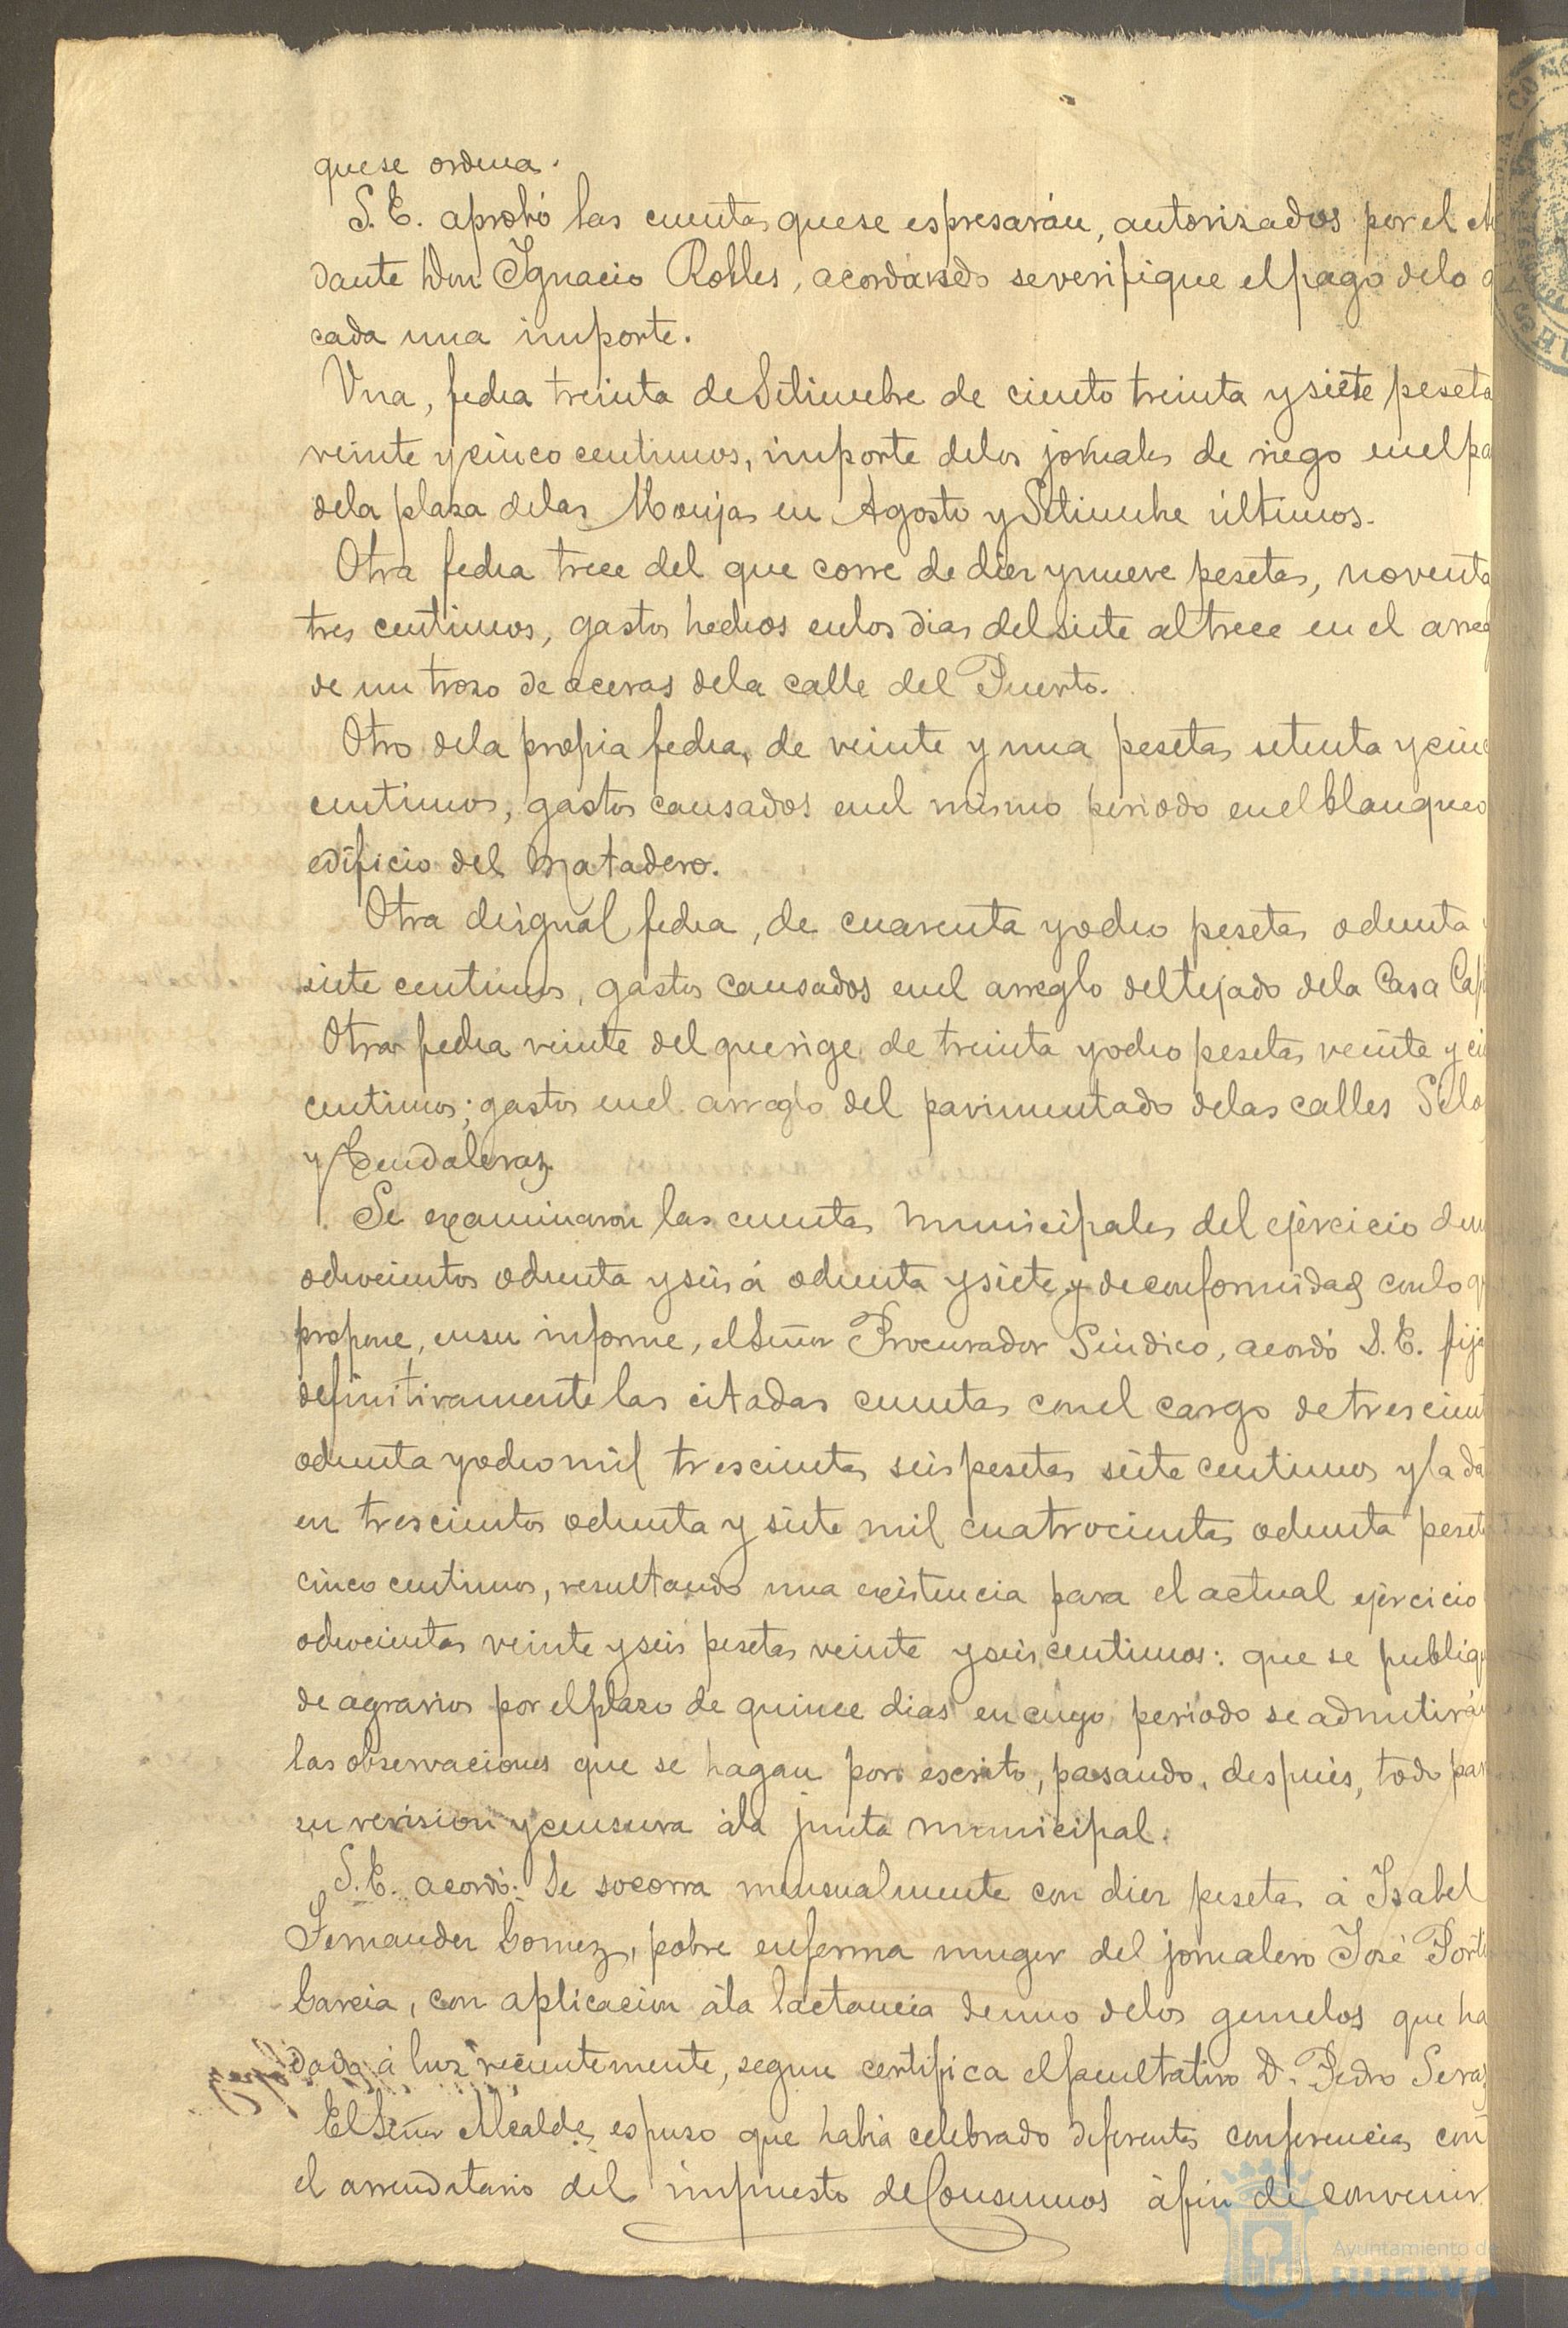 que se ordena.
S. E. aprobó las cuentas que se espresarán, autorizados por el
dante Don Ignacio Robles, acordándo se verifique el pago de lo
cada una importe.
Una, fecha treinta de Setiembre de ciento treinta y siete peseta
veinte y cinco centimos, importe de los jornales de riego en el pa
de la plaza de las Monjas en Agosto y Setiembre últimos.
Otra fecha trece del que corre de diez y nueve pesetas, noventa
tres centimos, gastos hechos en los dias del siete al trece en el arreg
de un trozo de aceras de la calle del Puerto.
Otro de la propia fecha, de veinte y una pesetas setenta y cinc
centimos, gastos causados en el mismo periodo en el blanqueo
edificio del Matadero.
Otra de igual fecha, de cuarenta y ocho pesetas ochenta y
siete centimos, gastos causados en el arreglo del tejado de la Casa Capi
Otra fecha veinte del que rige de treinta y ocho pesetas veinte y ci
centimos; gastos en el arreglo del pavimentado de las calles
y Rendaleras
Se examinaron las cuentas municipales del ejercicio de
ochocientos ochenta y seis á ochenta y siete y de conformidad con lo q
propone, en su informe, el Señor Procurador Síndico, acordó S. E. fija
definitivamente las citadas cuentas con el cargo de trescient
ochenta y ocho mil trescientas seis pesetas siete centimos y la da
en trescientos ochenta y siete mil cuatrocientas ochenta peseta
cinco centimos, resultando una existencia para el actual ejercicio
ochocientas veinte y seis pesetas veinte y seis centimos: que se publiqu
de agravios por el plazo de quince dias en cuyo periodo se admitirán
las observaciones que se hagan por escrito, pasando, después, todo par
su revision y censura á la junta municipal.
S. E. acordó: Se socorra mensualmente con diez pesetas á Isabel
Fernandez Gomez, pobre enferma muger del jornalero José Porti
Garcia, con aplicacion á la lactancia de uno de los gemelos que ha
dado á luz recientemente, segun certifica el facultativo D. Pedro Seras
El Señor Alcalde espuso que habia celebrado diferentes conferencias con
el arrendatario del impuesto de Consumos á fin de convenir
Ayuntamiento de
HUELVA